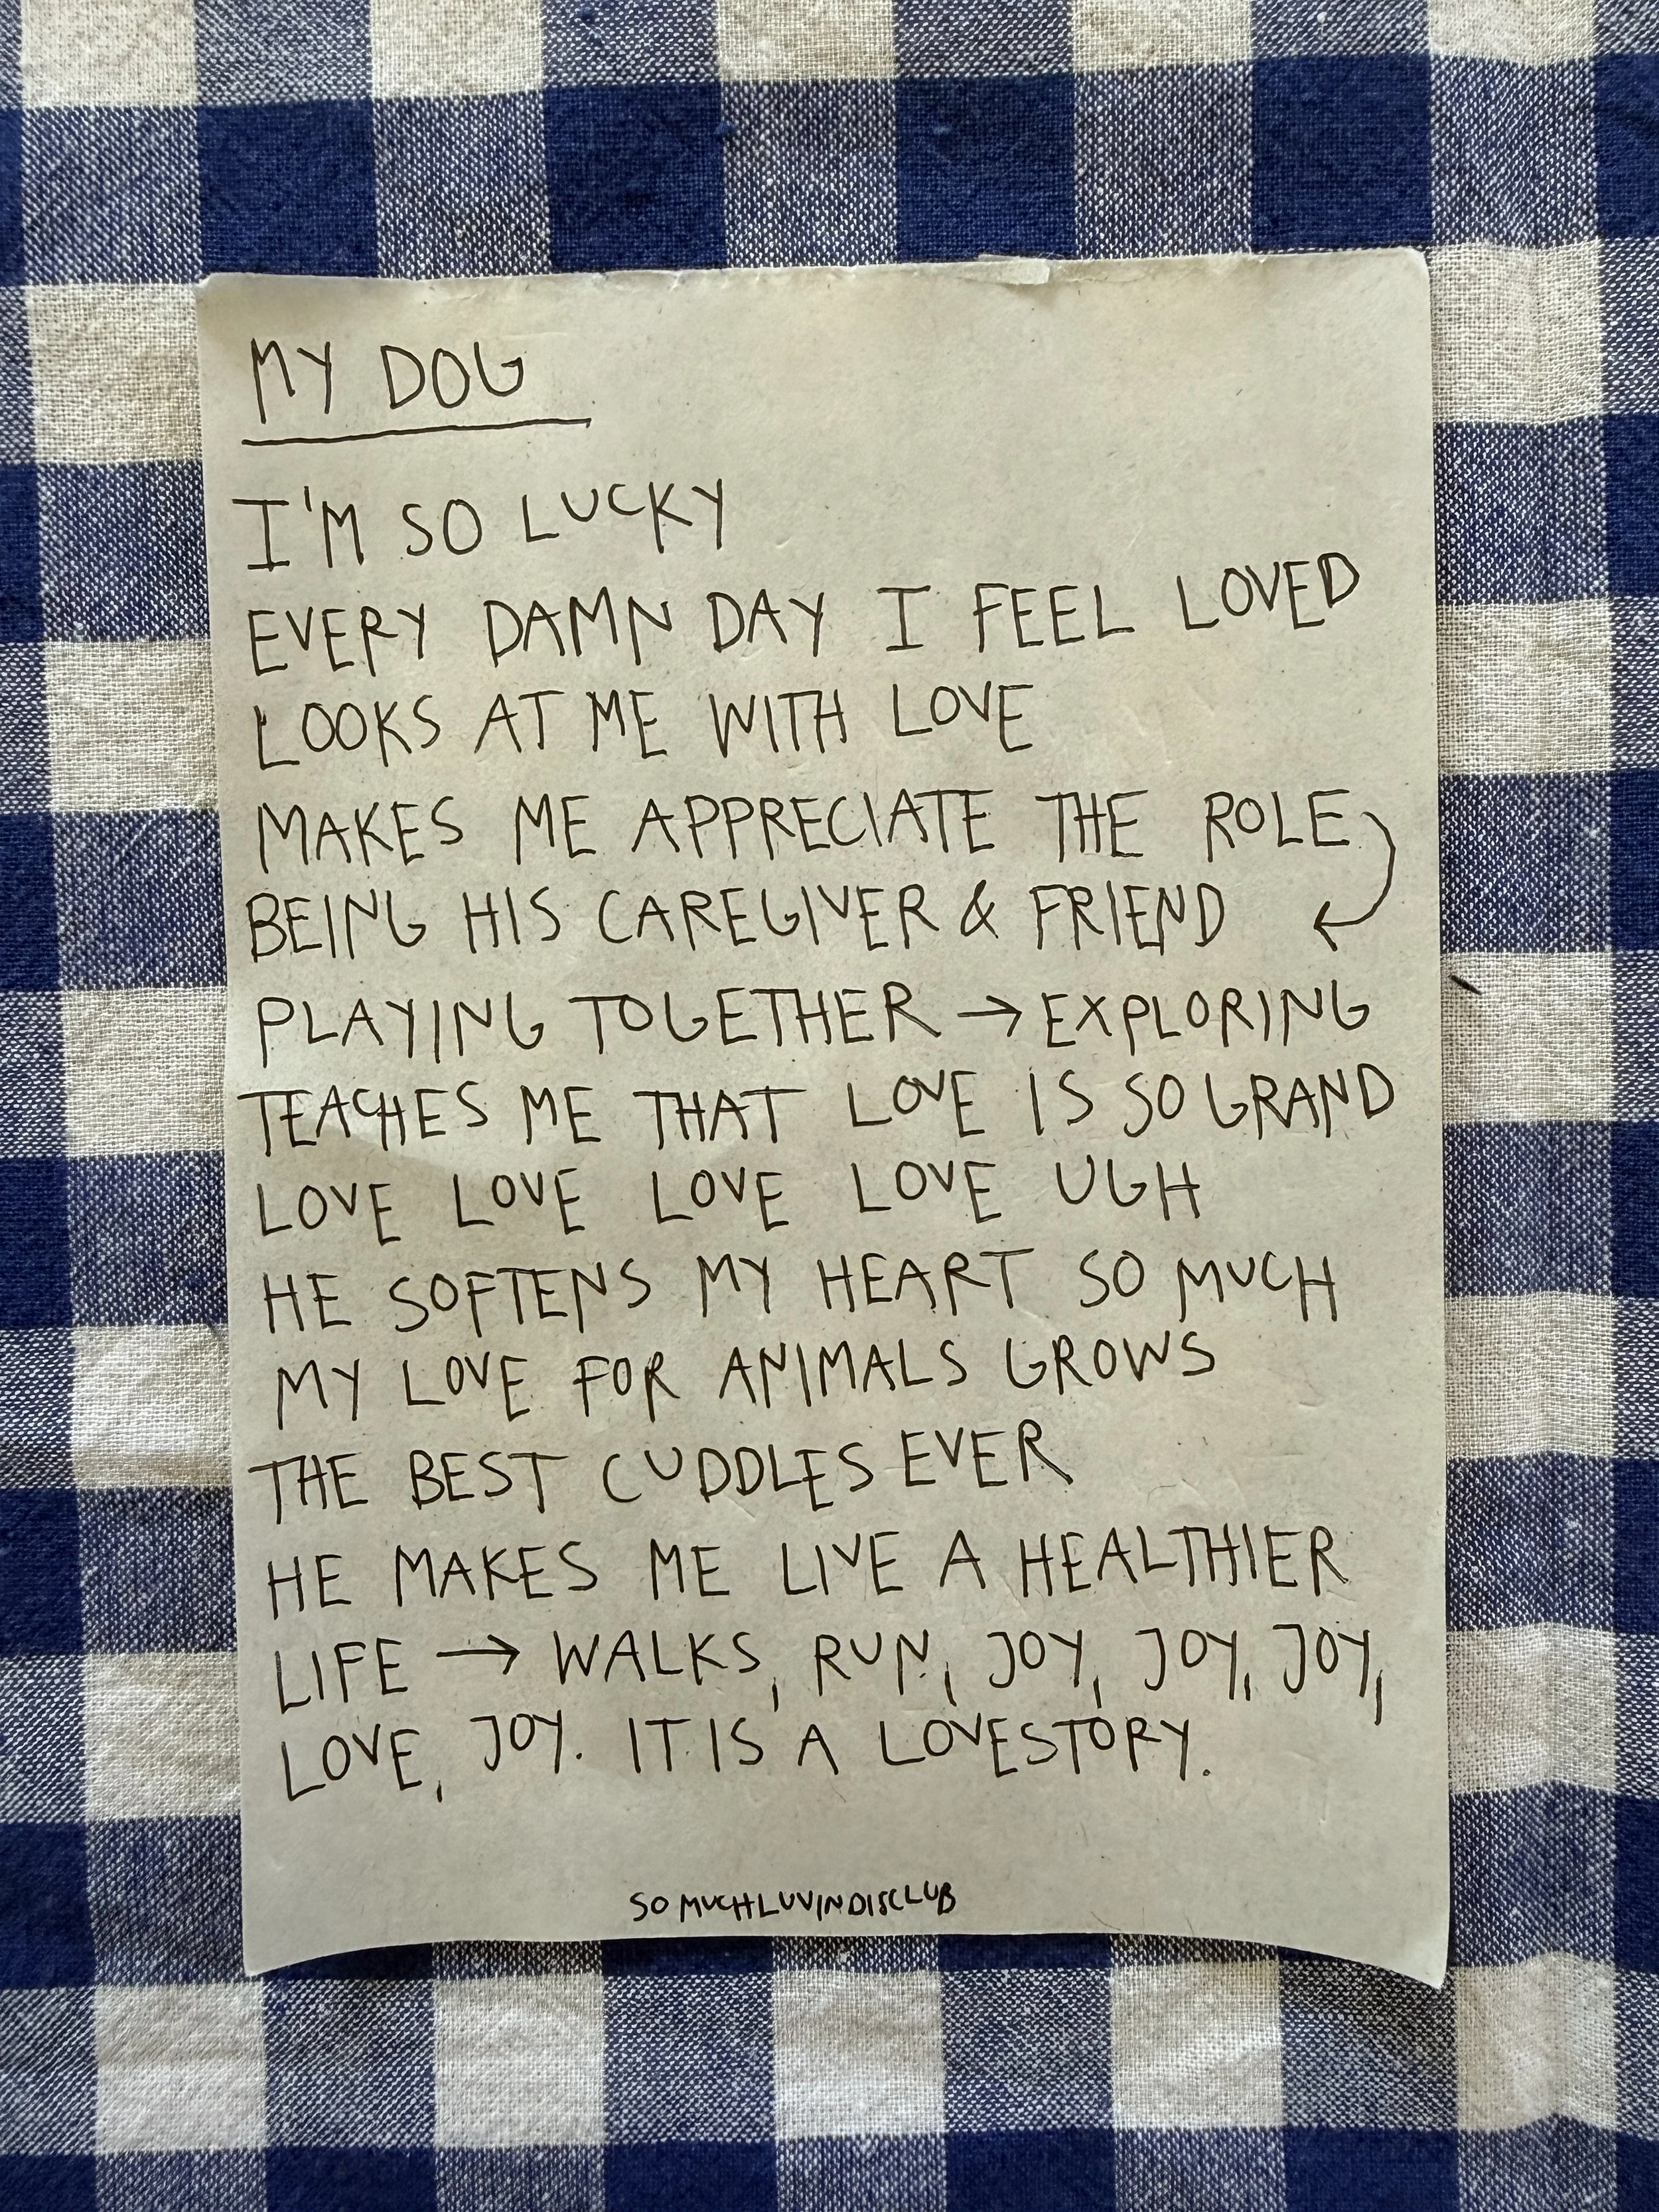 MY DOG
I'M SO LUCKY
EVERY DAMN DAY I FEEL LOVED
LOOKS AT ME WITH LOVE
MAKES ME APPRECIATE THE ROLE
BEING HIS CAREGIVER & FRIEND
PLAYING TOGETHER → EXPLORING
TEACHES ME THAT LOVE IS SO GRAND
LOVE LOVE LOVE LOVE UGH
HE SOFTENS MY HEART SO MUCH
MY LOVE FOR ANIMALS GROWS
THE BEST CUDDLES EVER
HE MAKES ME LIVE A HEALTHIER
LIFE → WALKS, RUN, JOY, JOY, JOY,
LOVE, JOY. IT IS A LOVESTORY.
SO MUCHLUVINDISCLUB